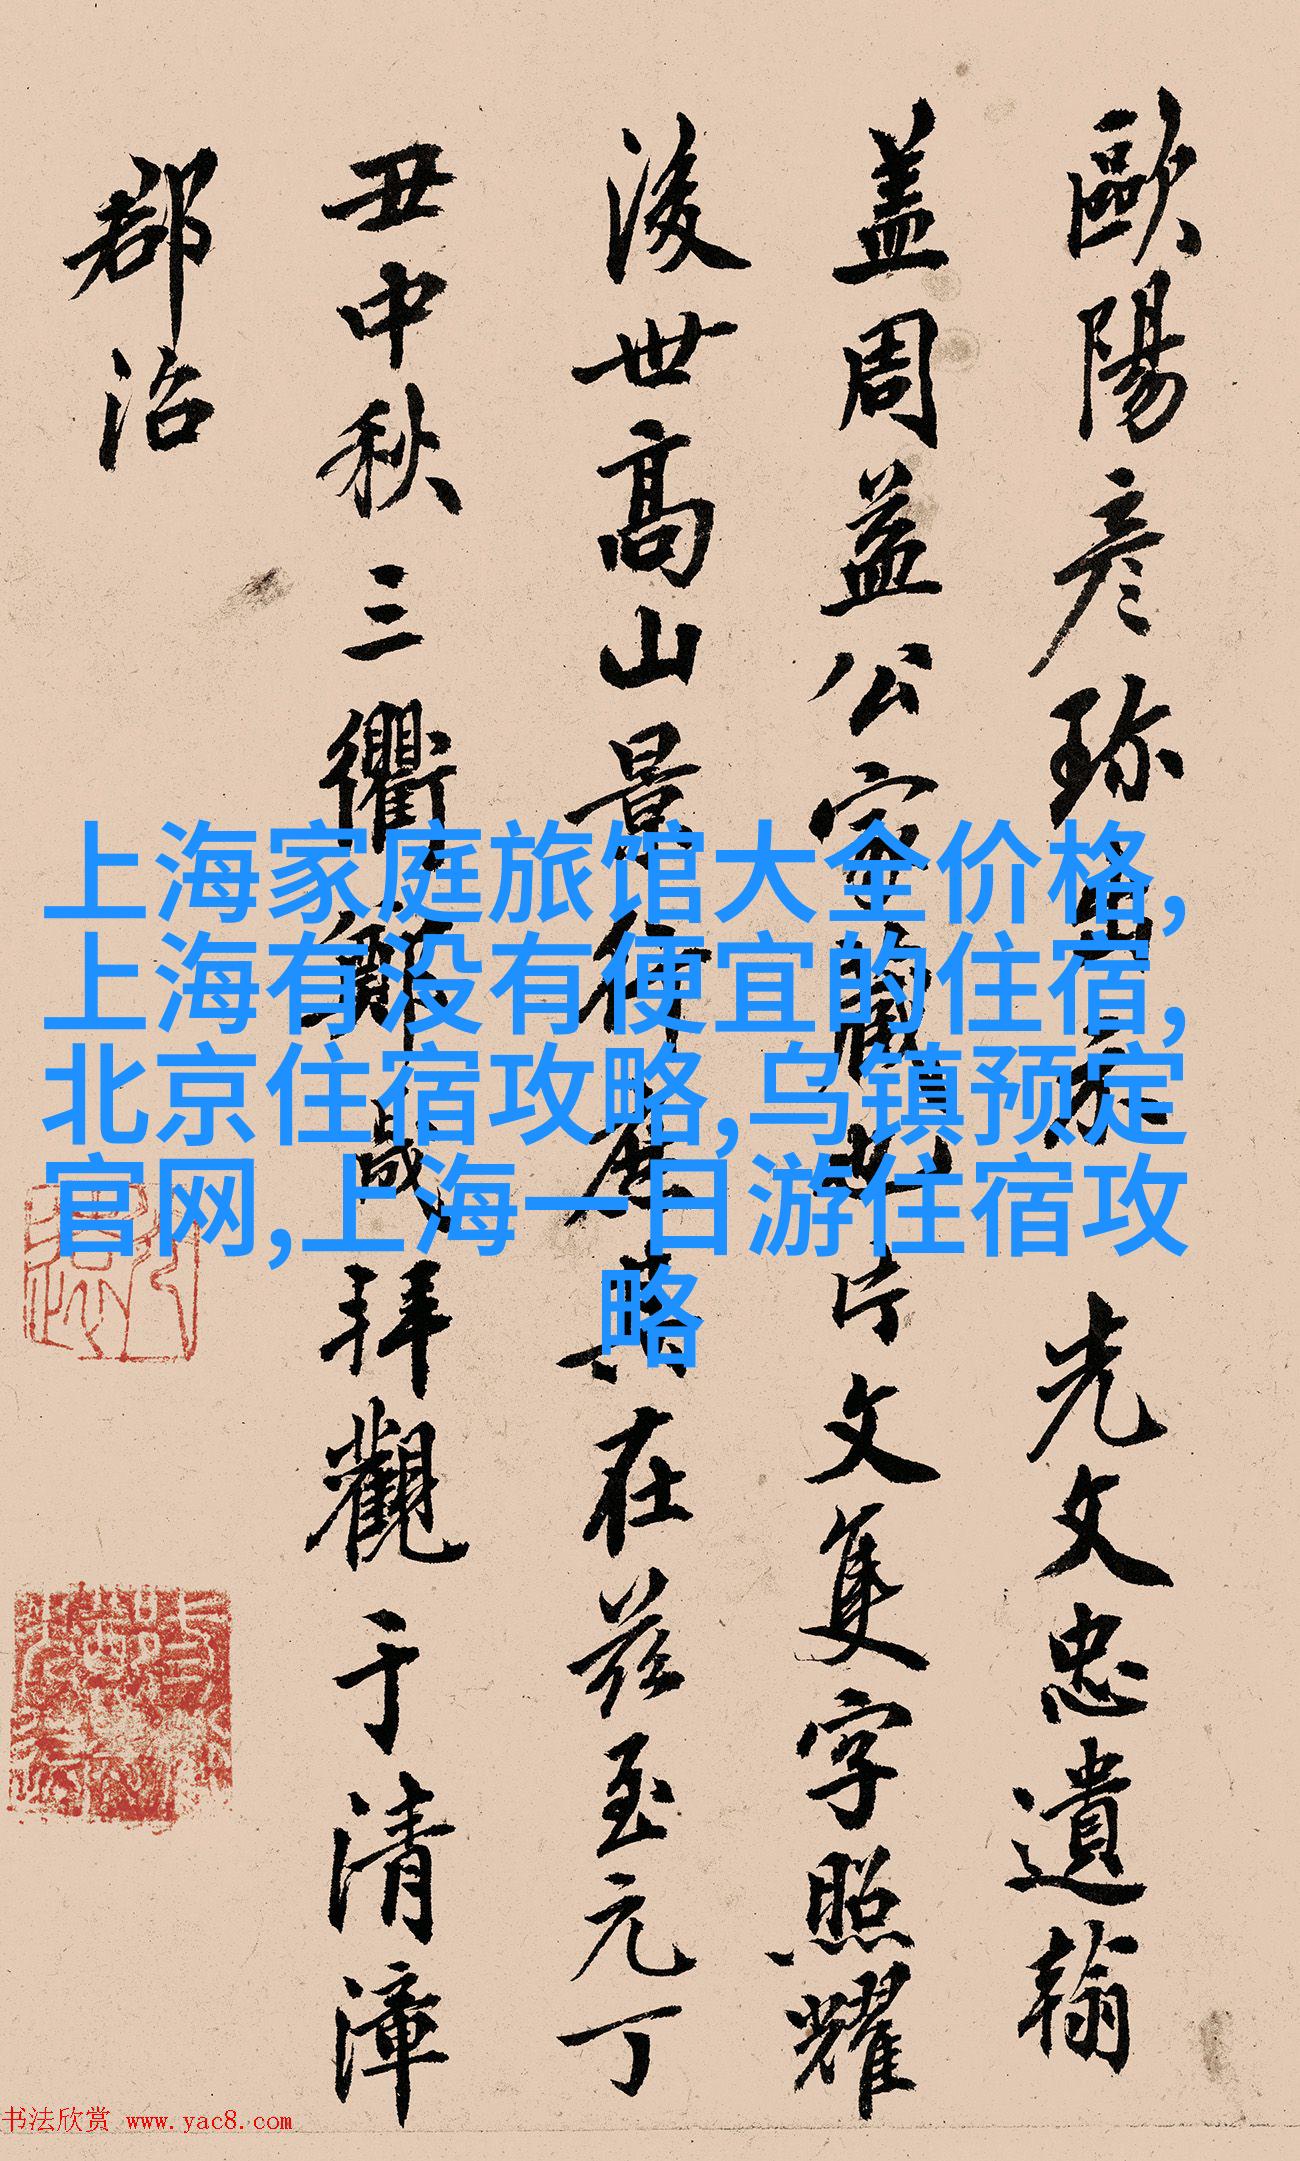 歐陽彦珎出示 先文忠遺翰
盖周益公家藏也片文隻字照耀
後世髙山景行在兹至元丁
丑中秋三衢拜觀于清漳
郡治
上海家庭旅馆大全价格,
上海有没有便宜的住宿,
北京住宿攻略,乌镇预定
官网,上海一日游住宿攻
略
书法欣赏 www.yac8.com